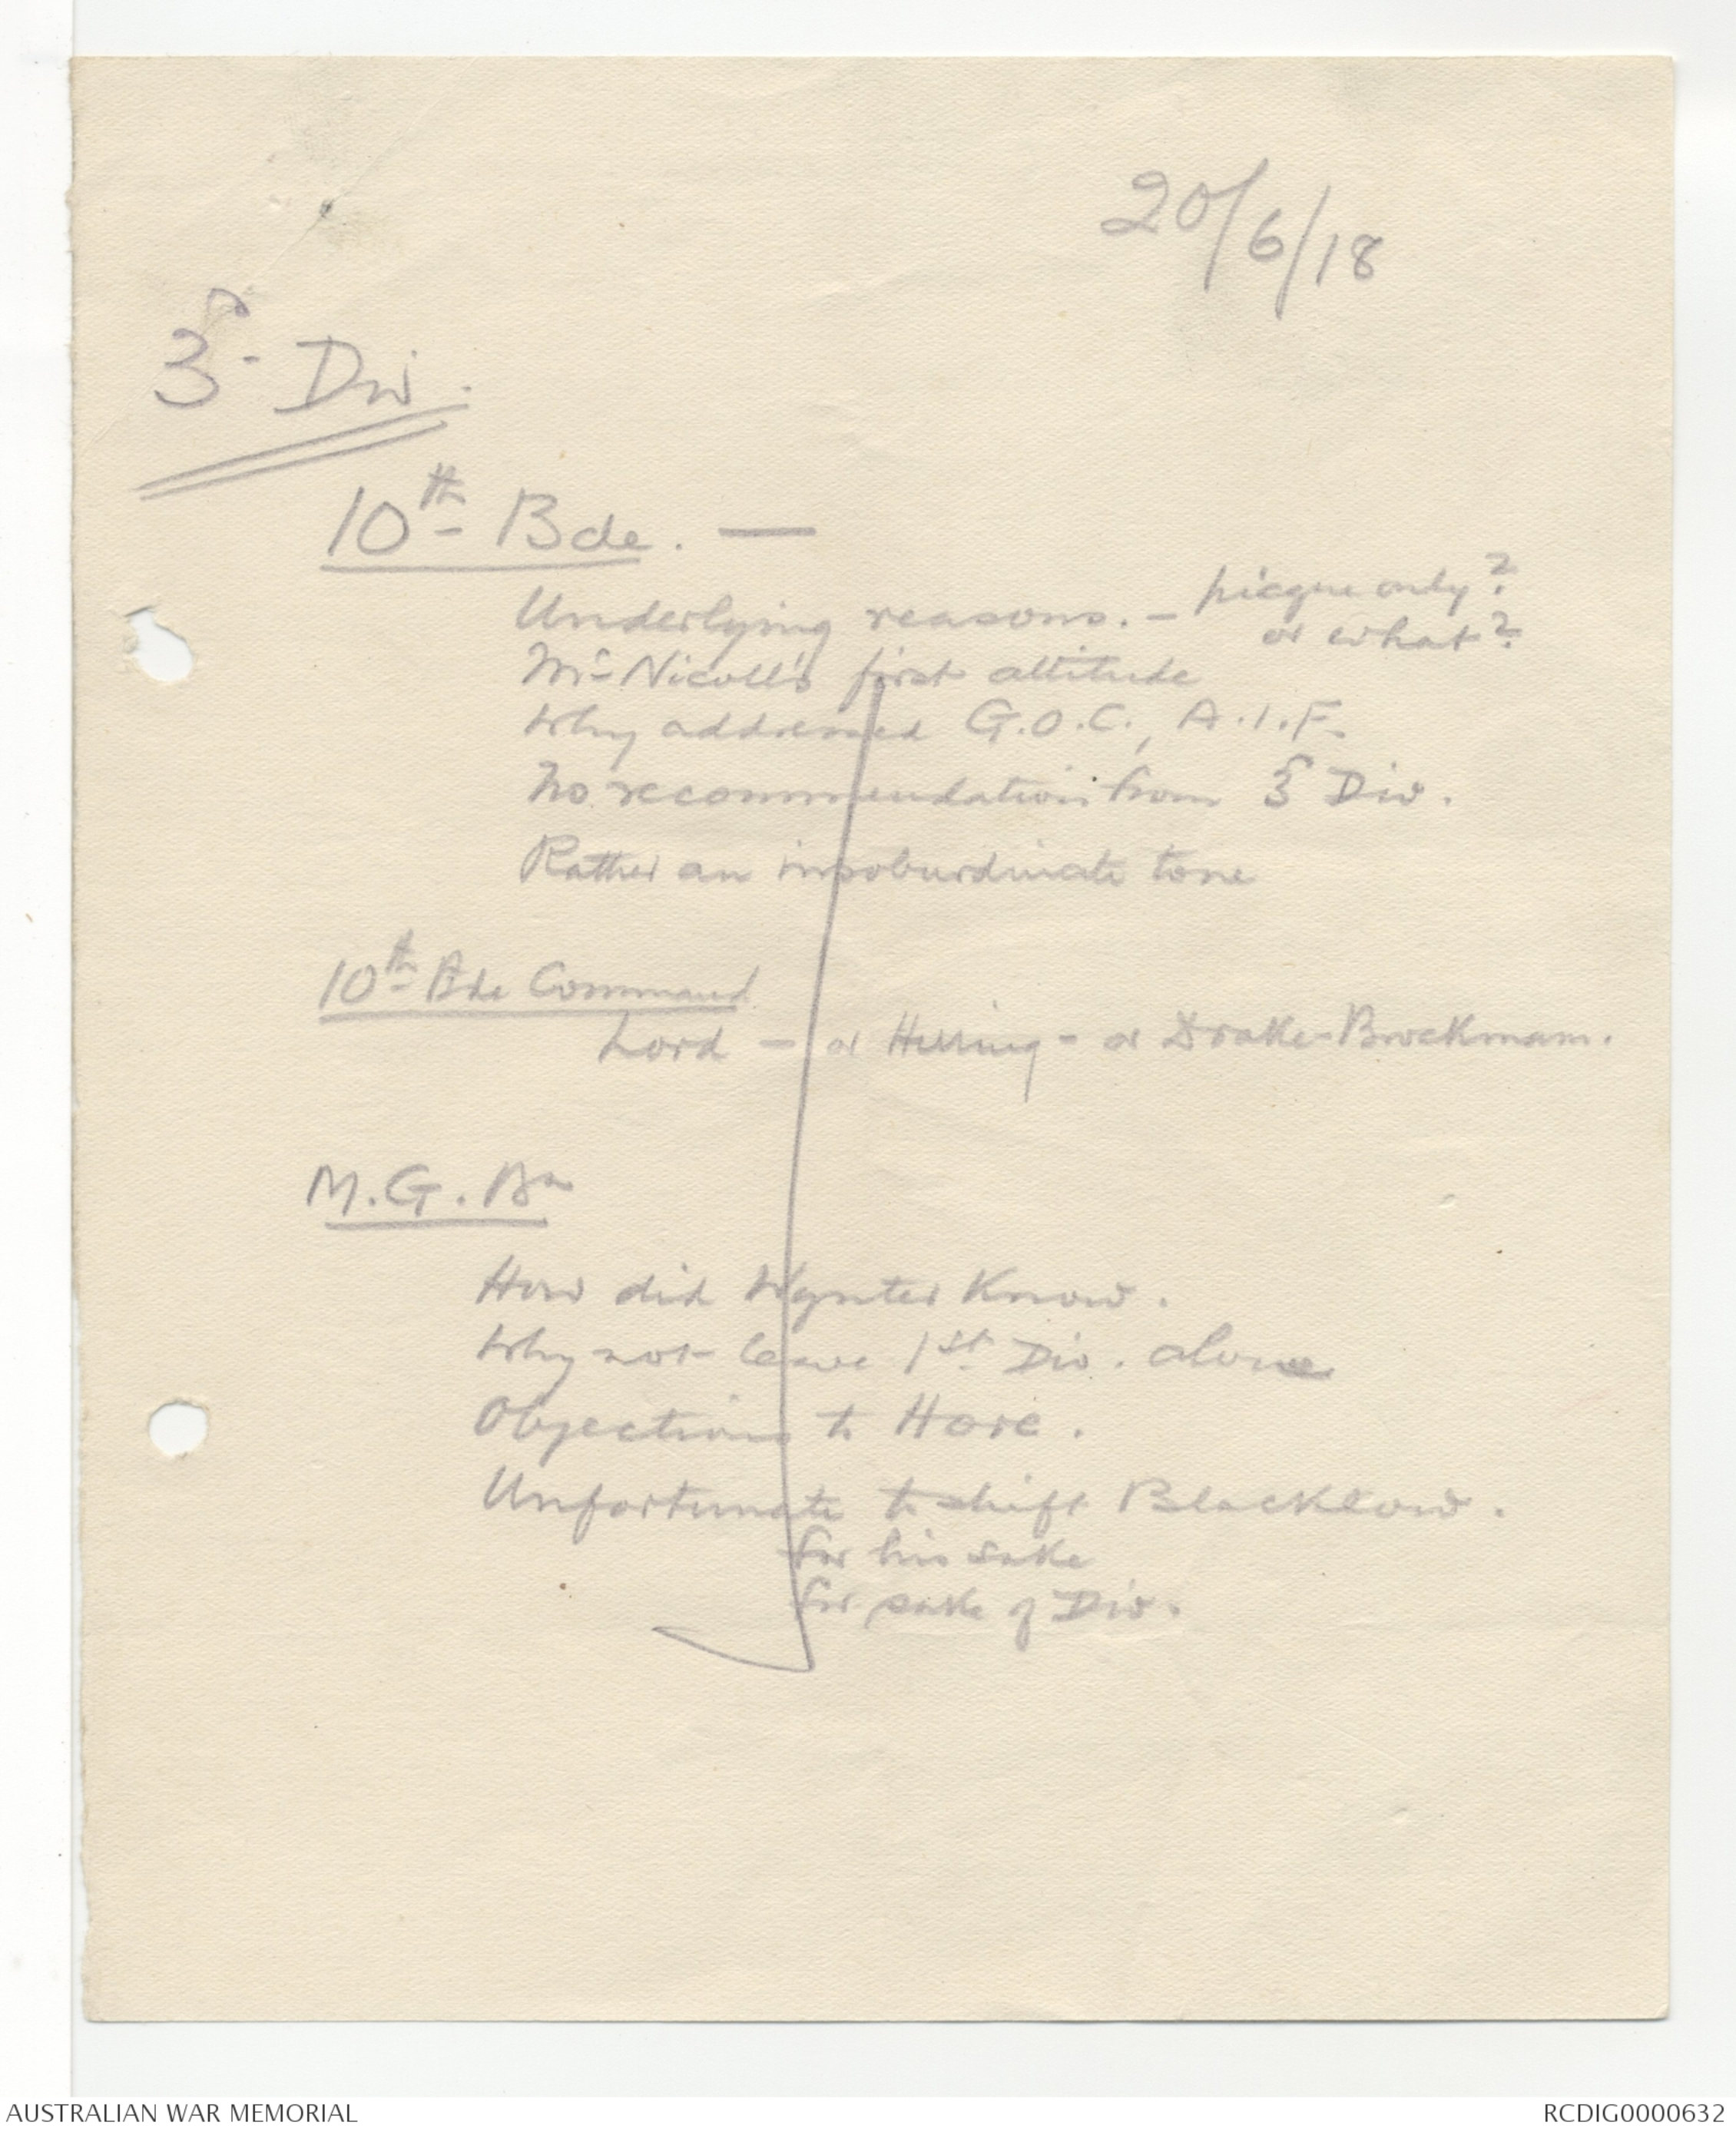 20/6/18
3rd Div.
10th Bde. —
Underlying reasons. — picque only?
or what?
McNicoll's first attitude
Why addressed G.O.C., A.I.F.
No recommendation from 3rd Div.
Rather an insoburdinate tone
10th Bde Command
Lord — or Herring - or Drake-Brockman.
M.G. Bn
How did Wynter Know.
Why not leave 1st Div. alone
Objections to Hore.
Unfortunate to shift Blacklow.
for his sake
for sake of Div.
AUSTRALIAN WAR MEMORIAL
RCDIG0000632